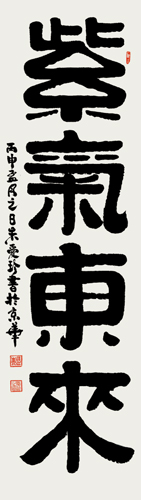 紫氣東來
丙申孟月之日朱愛珍書於京華